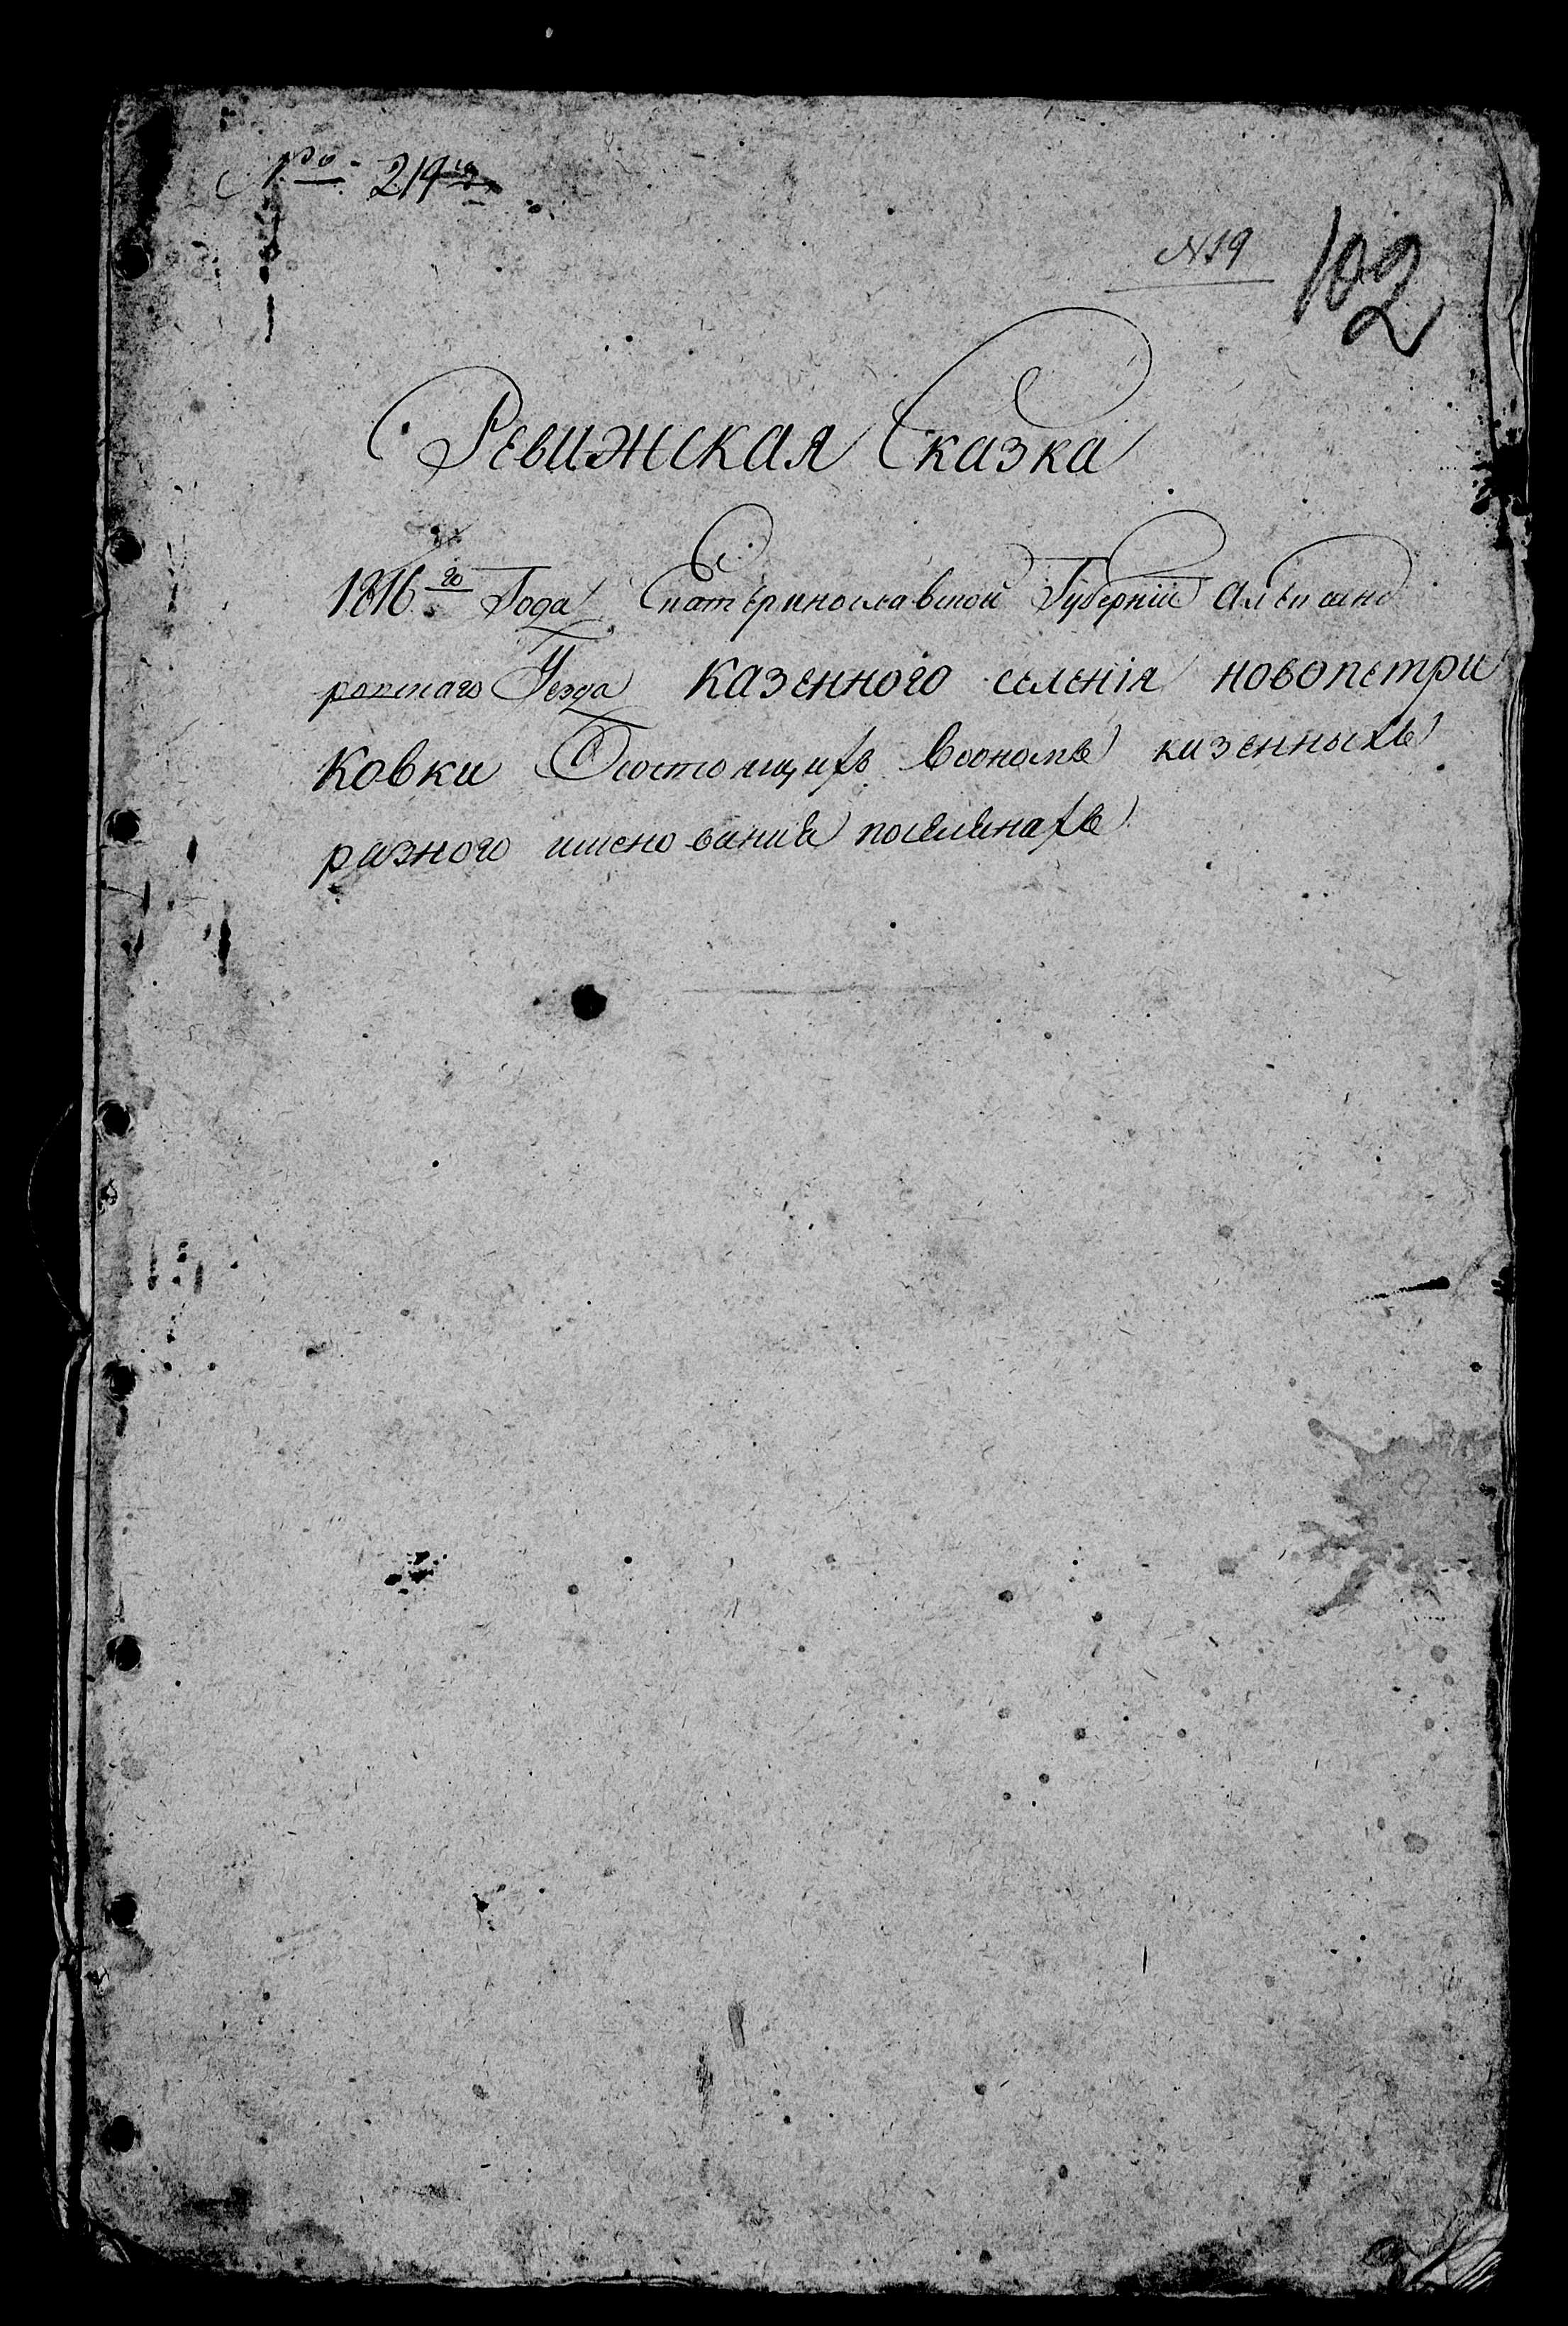 № 219го
N 19
102
Ревижская Сказка
1816го Года Екатеринославской Губернiи Александ
ровскаго Уезда казенного селенiя новопетри
ковки Осостоящихъ Воономъ казенныхъ
разного имянования поселянахъ